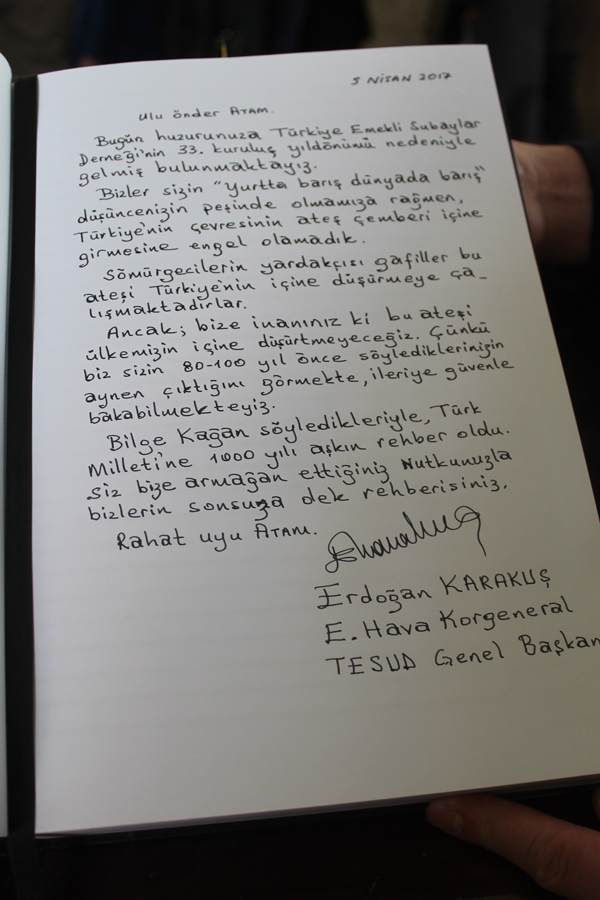 5 NİSAN 2017
Ulu önder ATAM.
Bugün huzurunuza Türkiye Emekli Subaylar
Derneği'nin 33. kuruluş yıldönümü nedeniyle
gelmiş bulunmaktayız.
Bizler sizin "Yurtta barış dünyada barış"
düşüncenizin peşinde olmamıza rağmen,
Türkiye'nin çevresinin ateş çemberi içine
girmesine engel olamadık.
Sömürgecilerin yardakçısı gafiller bu
ateşi Türkiye'nin içine düşürmeye ça-
lışmaktadırlar.
Ancak; bize inanınız ki bu ateşi
ülkemizin içine düşürtmeyeceğiz. Çünkü
biz sizin 80-100 yıl önce söylediklerinizin
aynen çıktığını görmekte, ileriye güvenle
bakabilmekteyiz.
Bilge Kağan söyledikleriyle, Türk
Milleti'ne 1000 yılı aşkın rehber oldu.
Siz bize armağan ettiğiniz Nutkunuzla
bizlerin sonsuza dek rehberisiniz.
Rahat uyu ATAM.
Erdoğan KARAKUŞ
E. Hava Korgeneral
TESUD Genel Başkan